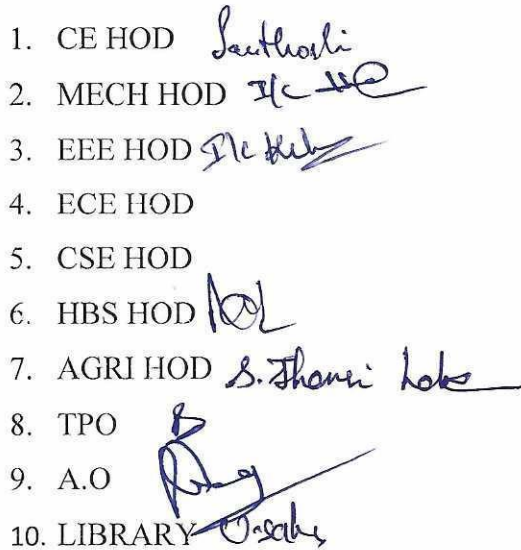 1. CE HOD Santhoshi
2. MECH HOD I/c
3. EEE HOD I/c
4. ECE HOD
5. CSE HOD
6. HBS HOD
7. AGRI HOD S. Jhansi
8. TPO
9. A.O
10. LIBRARY